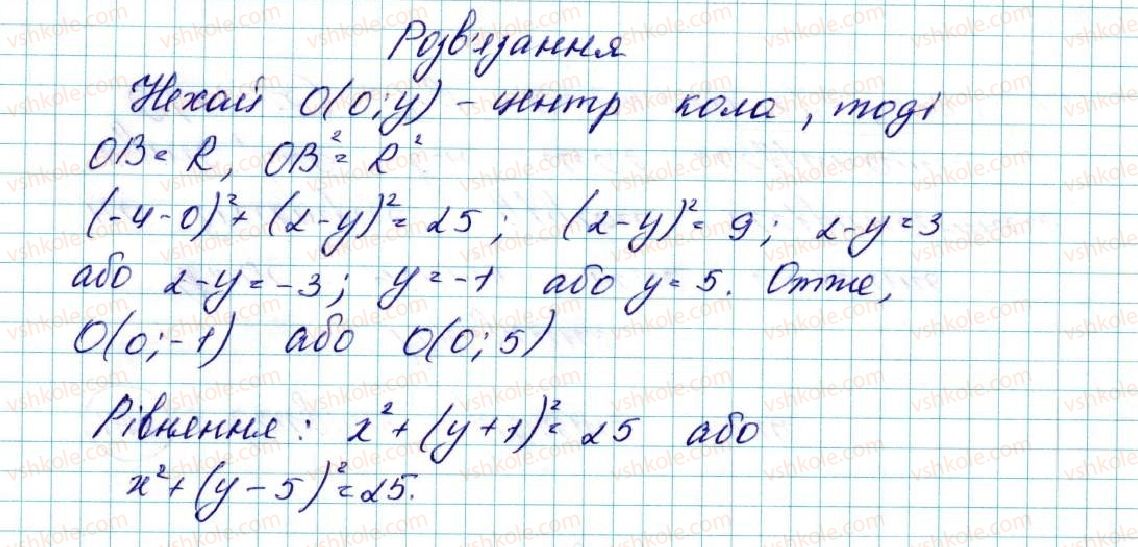 Розв'язання
Нехай O(0;y) - центр кола, тоді
OB = R, OB² = R².
(-4-0)² + (2-y)² = 25; (2-y)² = 9; 2-y=3
або 2-y = -3; y = -1 або y = 5. Отже,
O(0;-1) або O(0;5)
Рівняння: x² + (y+1)² = 25 або
x² + (y-5)² = 25.